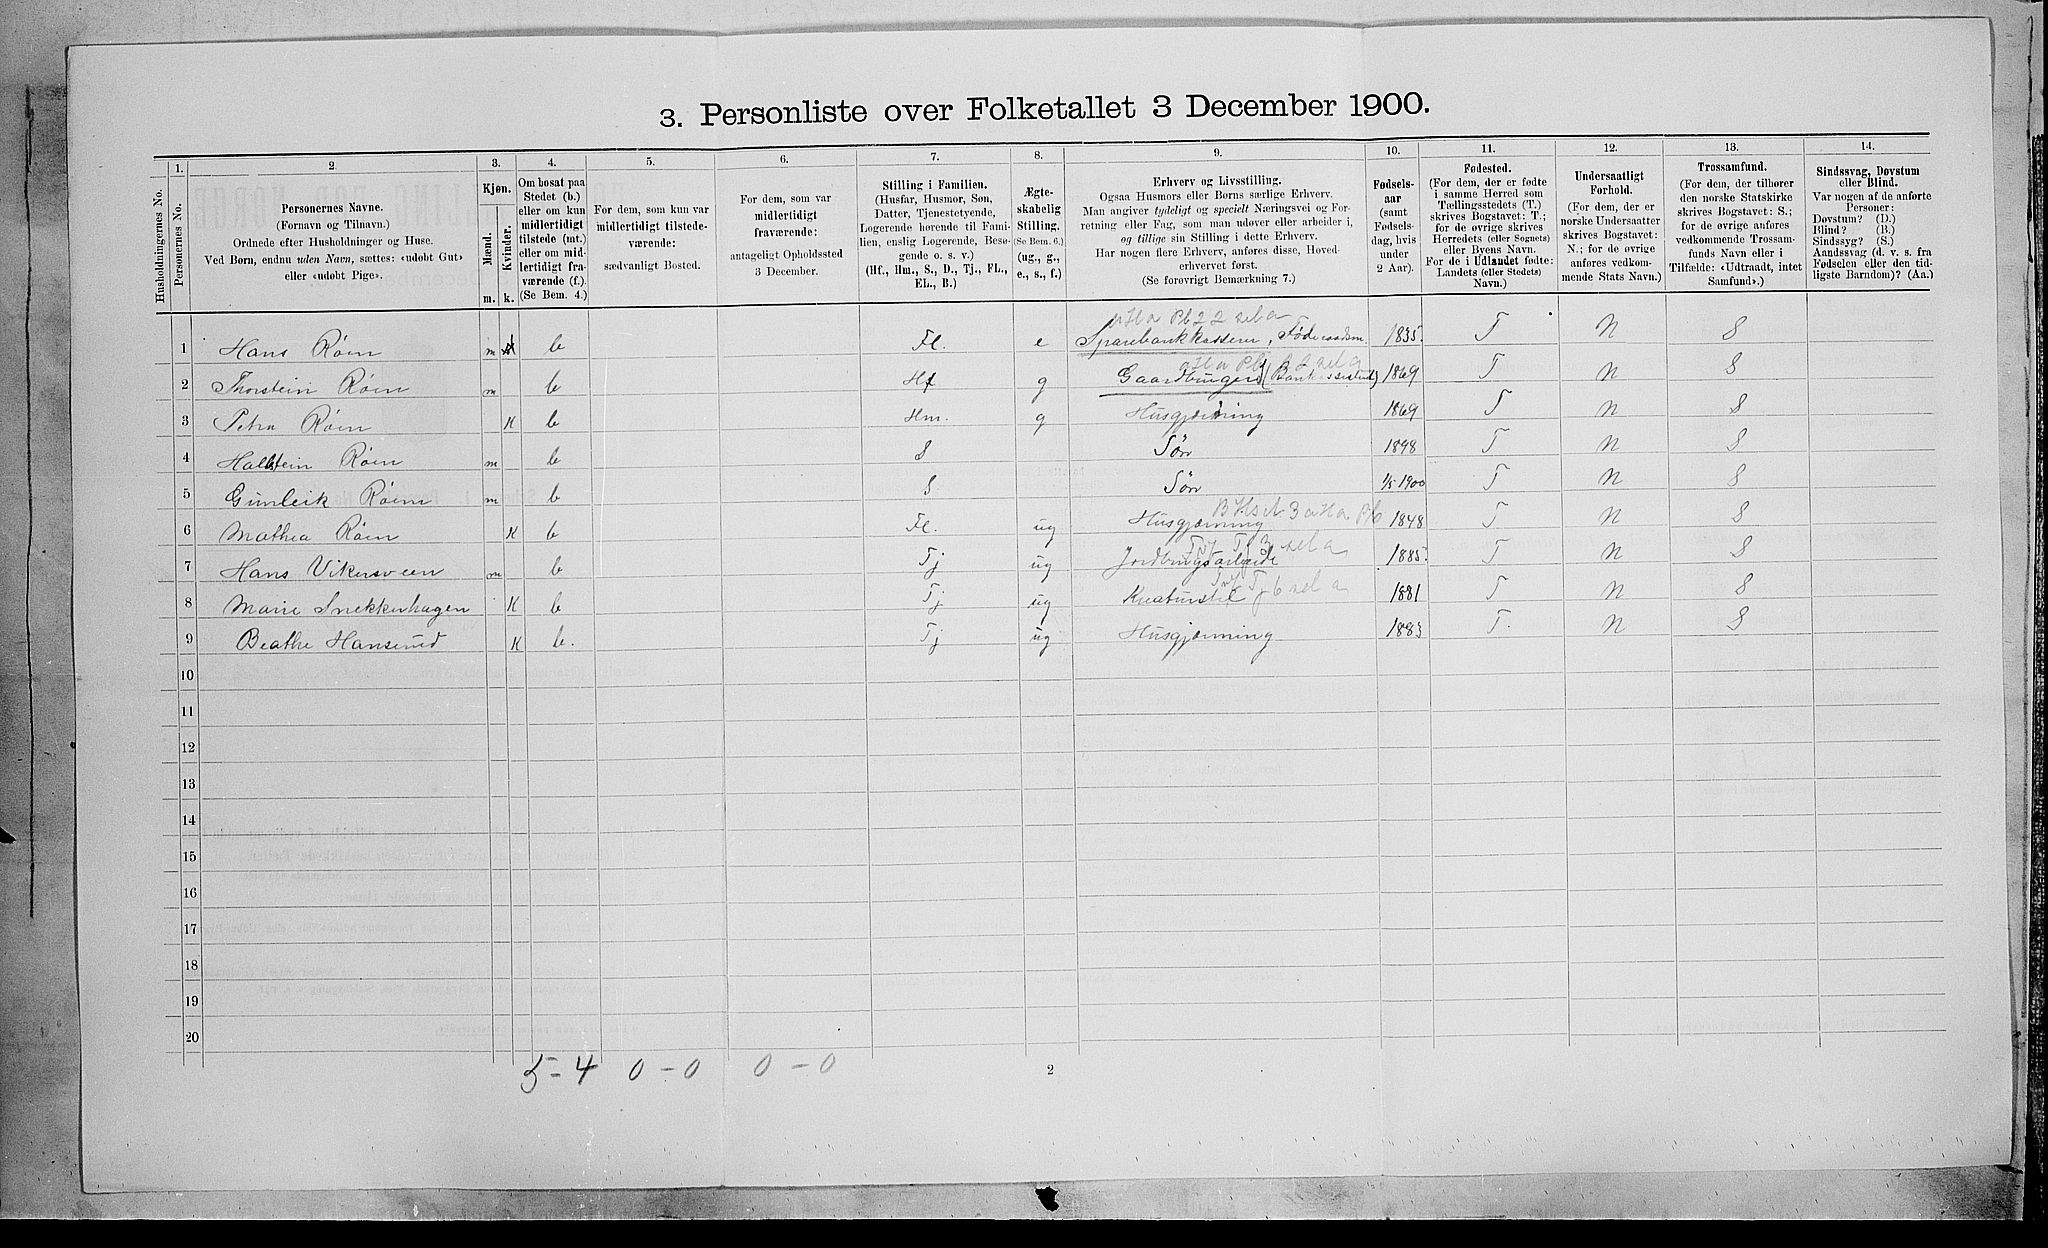 3. Personliste over Folketallet 3 December 1900.
1. 2. 3. 4. 5. 6. 7. 8. 9. 10. 11. 12. 13. 14.
Husholdningernes No.
Personernes No.
Personernes Navne.
(Fornavn og Tilnavn.)
Ordnede efter Husholdninger og Huse.
Ved Børn, endnu uden Navn, sættes: «udøbt Gut»
eller «udøbt Pige».
Kjøn.
Mænd.
Kvinder.
m. k.
Om bosat paa
Stedet (b.)
eller om kun
midlertidigt
tilstede (mt.)
eller om mid-
lertidigt fra-
værende (f.).
(Se Bem. 4.)
For dem, som kun var
midlertidigt tilstede-
værende:
sædvanligt Bosted.
For dem, som var
midlertidigt
fraværende:
antageligt Opholdssted
3 December.
Stilling i Familien.
(Husfar, Husmor, Søn,
Datter, Tjenestetyende,
Logerende hørende til Fami-
lien, enslig Logerende, Besø-
gende o. s. v.)
(Hf., Hm., S., D., Tj., FL.,
EL., B.)
Ægte-
skabelig
Stilling.
(Se Bem. 6.)
(ug., g.,
e., s., f.)
Erhverv og Livsstilling.
Ogsaa Husmors eller Børns særlige Erhverv.
Man angiver tydeligt og specielt Næringsvei og For-
retning eller Fag, som man udøver eller arbeider i,
og tillige sin Stilling i dette Erhverv.
Har nogen flere Erhverv, anføres disse, Hoved-
erhvervet først.
(Se forøvrigt Bemærkning 7.)
Fødsels-
aar
(samt
Fødsels-
dag, hvis
under
2 Aar).
Fødested.
(For dem, der er fødte
i samme Herred som
Tællingsstedets (T.)
skrives Bogstavet: T.;
for de øvrige skrives
Herredets (eller Sognets)
eller Byens Navn.
For de i Udlandet fødte:
Landets (eller Stedets)
Navn.)
Undersaatligt
Forhold.
(For dem, der er
norske Undersaatter
skrives Bogstavet:
N.; for de øvrige
anføres vedkom-
mende Stats Navn.)
Trossamfund.
(For dem, der tilhører
den norske Statskirke
skrives Bogstavet: S.;
for de øvrige anføres
vedkommende Trossam-
funds Navn eller i
Tilfælde: «Udtraadt, intet
Samfund».)
Sindssvag, Døvstum
eller Blind.
Var nogen af de anførte
Personer:
Døvstum? (D.)
Blind? (B.)
Sindssyg? (S.)
Aandssvag (d. v. s. fra
Fødselen eller den tid-
ligste Barndom)? (Aa.)
1 Hans Røim m b Fl. e Sparebankkasserer, Føderaadsm. 1835 T N S
2 Thorstein Røim m b Hf g Gaardbruger 1869 T N S
3 Petra Røim K b Hm. g Husgjerning 1869 T N S
4 Halstein Røim m b S Søn 1898 T N S
5 Gunleik Røim m b S Søn 1/5 1900 T N S
6 Mathea Røim K b Fl. ug Husgjerning 1848 T N S
7 Hans Vikersveen m b Tj ug Jordbrugsarbeide 1885 T N S
8 Marie Snekkerhagen K b Tj ug Kreaturstel 1881 T N S
9 Beathe Hanserud K b. Tj ug Husgjerning 1883 T. N S
10
11
12
13
14
15
16
17
18
19
20
5-4 0-0 0-0
2